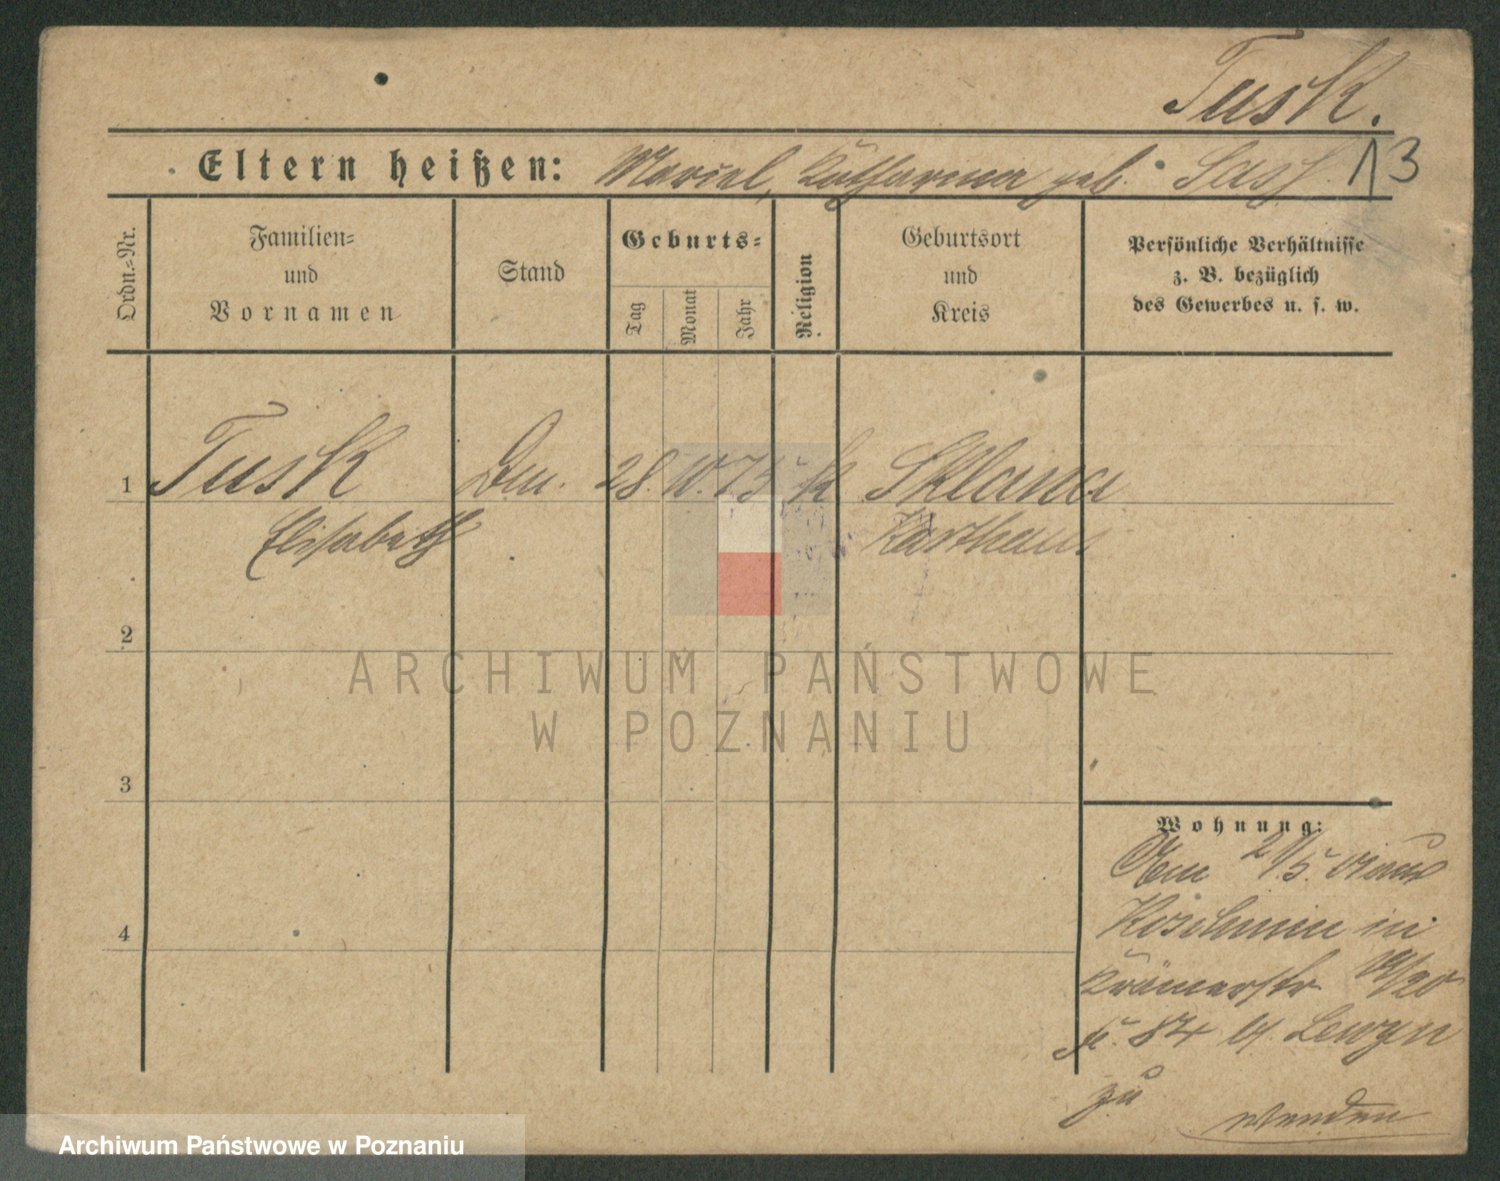 Tusk.
Eltern heißen: Marcel, Katharina geb. Sass
13
Ordn.-Nr.
Familien- und Vornamen
Stand
Geburts-
Tag
Monat
Jahr
Religion
Geburtsort und Kreis
Persönliche Verhältnisse
z. B. bezüglich
des Gewerbes u. s. w.
1 Tusk 28. 10. 73 k Sklana
Elisabeth Karthaus
2
3
4
Wohnung:
Am 2/5. 01 aus
in
Krämerstr 19/20
84 Lewyn
zu
wenden
ARCHIWUM PAŃSTWOWE
W POZNANIU
Archiwum Państwowe w Poznaniu